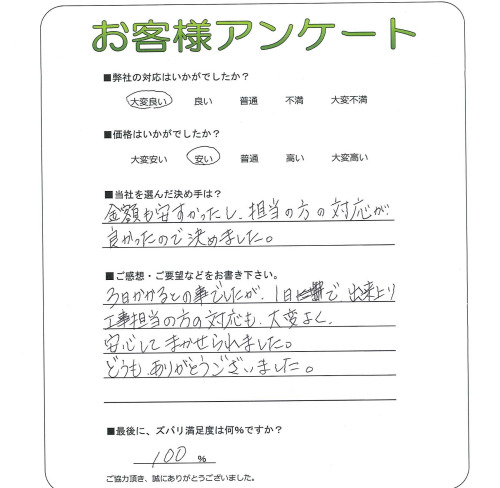 お客様アンケート
■弊社の対応はいかがでしたか？
大変良い 良い 普通 不満 大変不満
■価格はいかがでしたか？
大変安い 安い 普通 高い 大変高い
■当社を選んだ決め手は？
金額も安すかったし、担当の方の対応が
良かったので決めました。
■ご感想・ご要望などをお書き下さい。
3日かかるとの事でしたが、1日で出来上り
工事担当の方の対応も、大変よく、
安心してまかせられました。
どうも、ありがとうございました。
■最後に、ズバリ満足度は何％ですか？
100 %
ご協力頂き、誠にありがとうございました。